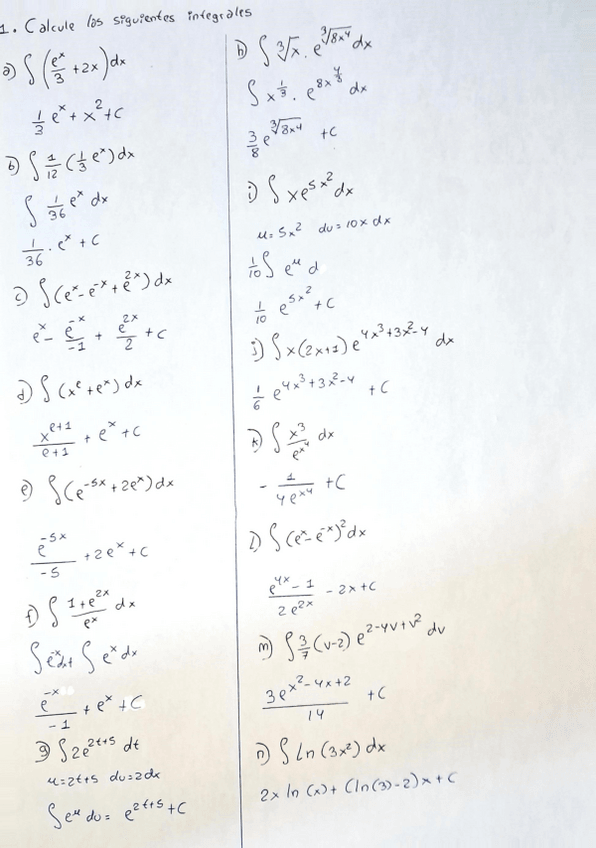 1. Calcule los siguientes integrales
a) ∫ (e^x/3 + 2x) dx
1/3 e^x + x^2 + C
b) ∫ 1/12 (1/3 e^x) dx
∫ 1/36 e^x dx
1/36 . e^x + C
c) ∫ (e^x - e^-x + e^2x) dx
e^x - e^-x/-1 + e^2x/2 + C
d) ∫ (x^e + e^x) dx
x^(e+1)/(e+1) + e^x + C
e) ∫ (e^-5x + 2e^x) dx
e^-5x/-5 + 2e^x + C
f) ∫ (1+e^2x)/e^x dx
∫ e^-x dx + ∫ e^x dx
e^-x/-1 + e^x + C
g) ∫ 2e^(2t+5) dt
u=2t+5 du=2dx
∫ e^u du = e^(2t+5) + C
h) ∫ ∛x . e^(∛(8x^4)) dx
∫ x^(1/3) . e^(8x^(4/3)) dx
3/8 e^(∛(8x^4)) + C
i) ∫ x e^(5x^2) dx
u=5x^2 du=10x dx
1/10 ∫ e^u d
1/10 e^(5x^2) + C
j) ∫ x(2x+1) e^(4x^3+3x^2-4) dx
1/6 e^(4x^3+3x^2-4) + C
k) ∫ x^3/e^(x^4) dx
- 1/(4e^(x^4)) + C
l) ∫ (e^x - e^-x)^2 dx
(e^4x - 1)/(2e^2x) - 2x + C
m) ∫ 3/7 (v-2) e^(2-4v+v^2) dv
3e^(x^2-4x+2)/14 + C
n) ∫ ln(3x^2) dx
2x ln(x) + (ln(3)-2)x + C